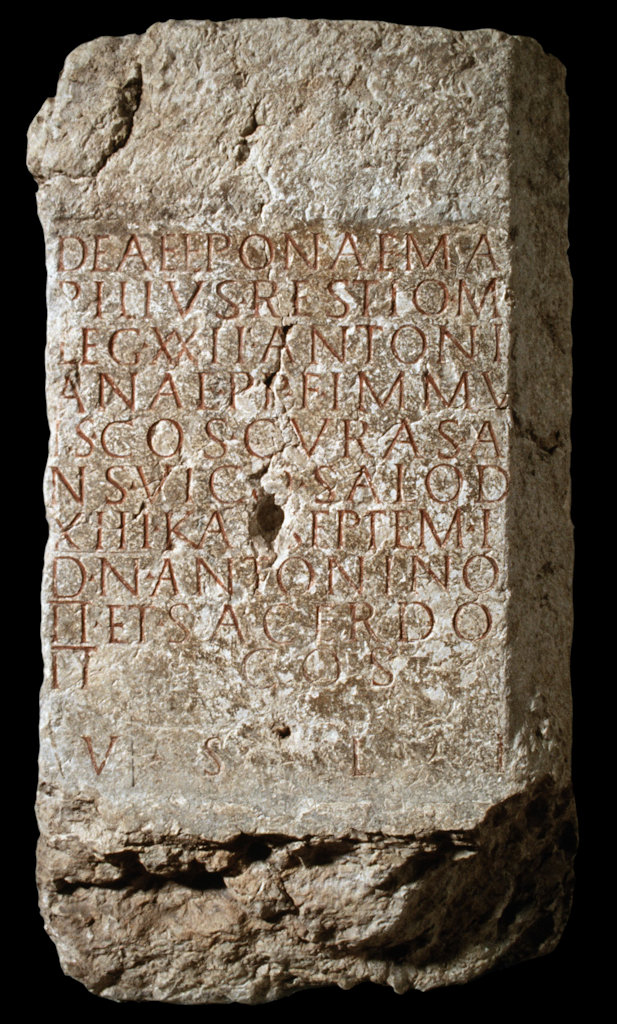 DEAE EPONAE MA
PILIVS RESTIO M
LEG XXII ANTONI
ANAE P P F IMMV
IS COS CVRAS A
NS VICO SALOD
XIIII KA SEPTEM
D·N·ANTONINO
II·ET·SACERDO
TI COS
V S L